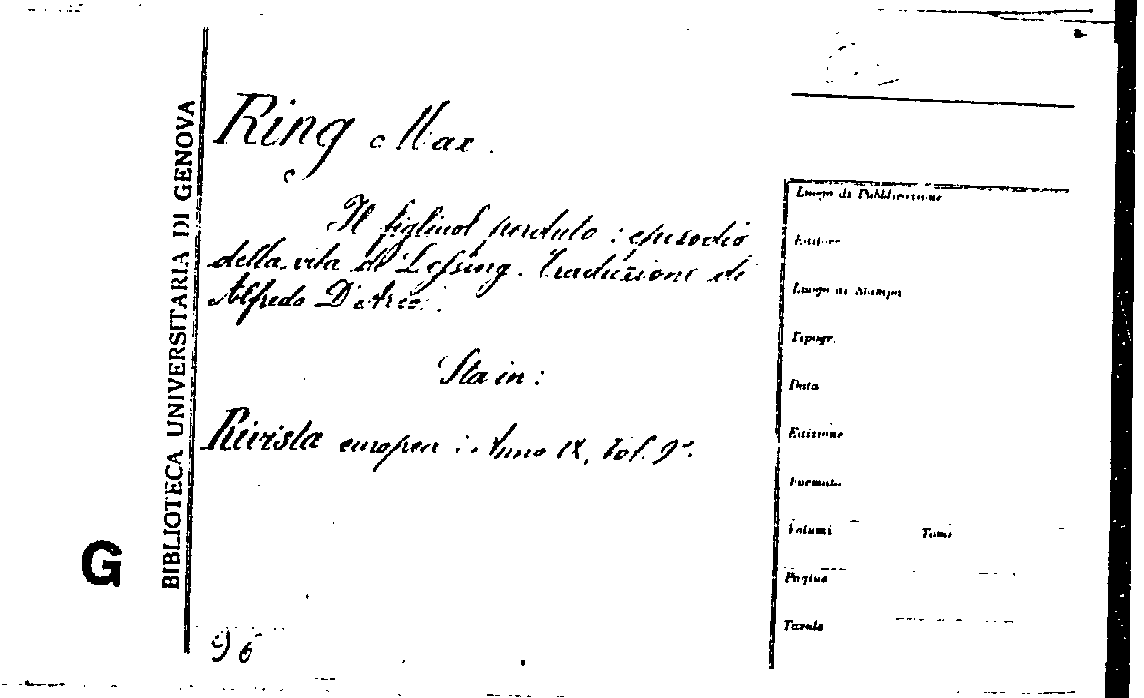 Ring Max.
Il figliuol perduto : episodio
della vita di Lessing. Traduzione di
Alfredo D'Arco.
Sta in :
Rivista europea : Anno IX, Vol. 9º.
96
BIBLIOTECA UNIVERSITARIA DI GENOVA
G
Luogo di Pubblicazione
Editore
Luogo di Stampa
Tipogr.
Data
Edizione
Formato
Volumi Tomi
Pagine
Tavole